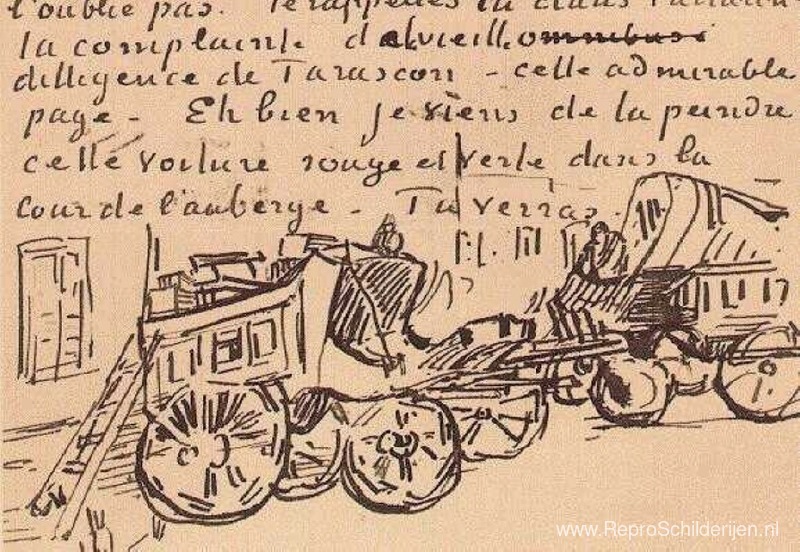 l'oublie pas. Te rappelles tu dans
la complainte de la vieille
dilligence de Tarascon – cette admirable
page – Eh bien je viens de la peindre
cette voiture rouge et verte dans la
cour de l'auberge – Tu verras.
www.ReproSchilderijen.nl